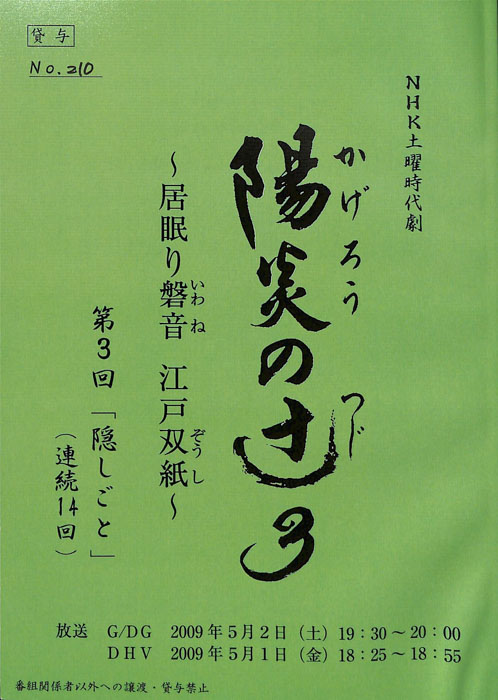 貸与
No.210
NHK土曜時代劇
かげろう つじ
陽炎の辻3
～居眠り磐音 江戸双紙～
いわね ぞうし
第3回「隠しごと」
(連続14回)
放送 G/DG 2009年5月2日(土) 19:30～20:00
DHV 2009年5月1日(金) 18:25～18:55
番組関係者以外への譲渡・貸与禁止